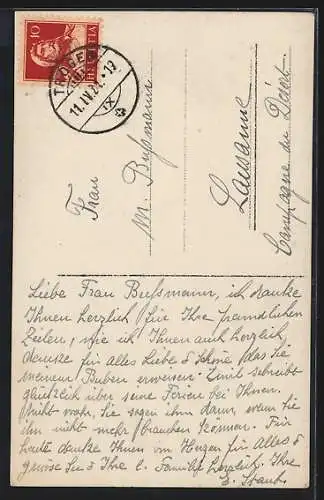 10
HELVETIA
TROGEN
11.IV.21.-19
IX
Frau
M. Bußmann
Lausanne
Campagne du Désert
Liebe Frau Bußmann, ich danke
Ihnen herzlich für Ihre freundlichen
Zeilen, wie ich Ihnen auch herzlich
danke für alles Liebe & Schöne, das Sie
meinem Buben erweisen. Emil schreibt
glücklich über seine Ferien bei Ihnen.
Nicht wahr, Sie sagen ihm dann, wenn Sie
ihn nicht mehr brauchen können. Für
heute danke Ihnen von Herzen für Alles &
grüsse Sie & Ihre l. Familie herzlich. Ihre
E. Straub.